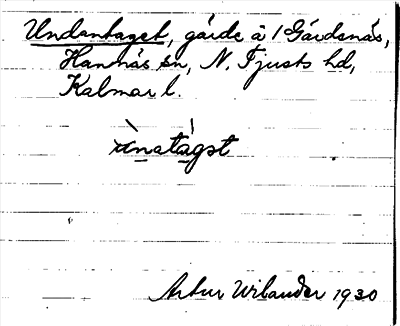 Undantaget, gärde å 1 Gärdsnäs,
Hannäs sn, N. Tjusts hd,
Kalmar l.
ùnatàgst
Artur Wilander 1930